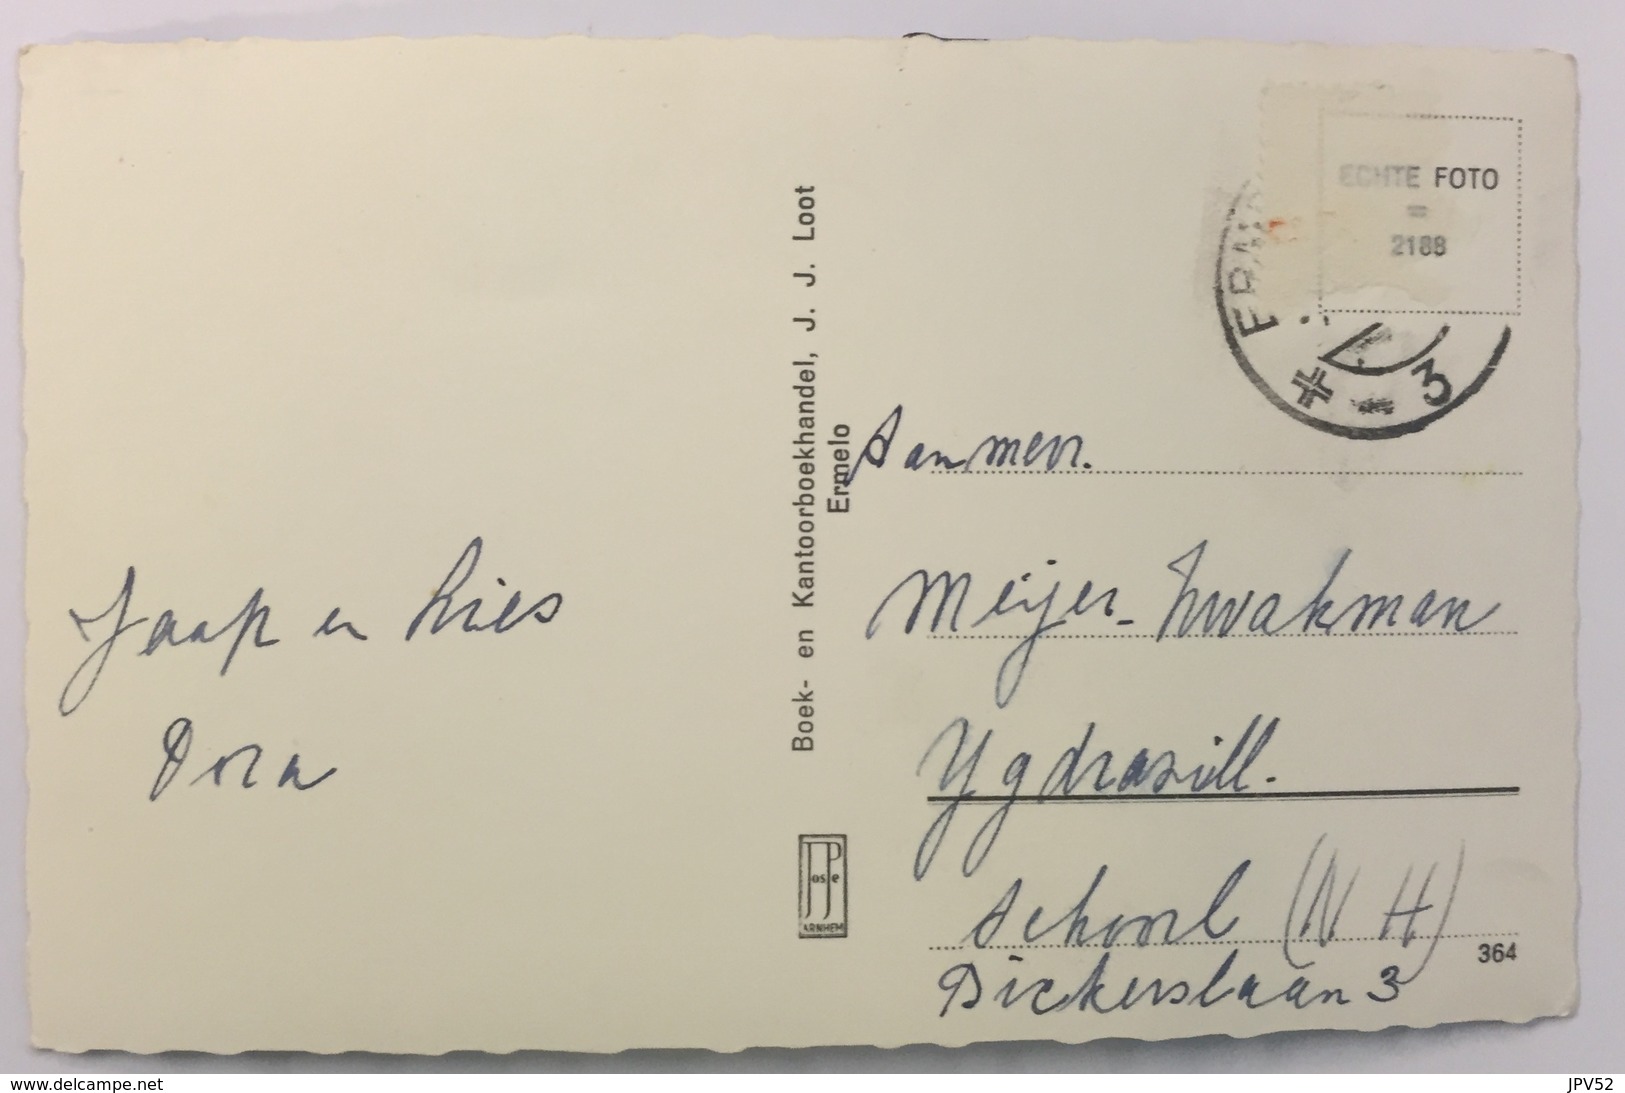 Jaap en Lies
Dora
Boek- en Kantoorboekhandel, J. J. Loot
Ermelo
JosPé
ARNHEM
ECHTE FOTO
=
2188
3
Aan mevr.
Meijer-Zwakman
Ygdrasill.
Schoorl (N H)
364
Dickerslaan 3
www.delcampe.net
JPV52